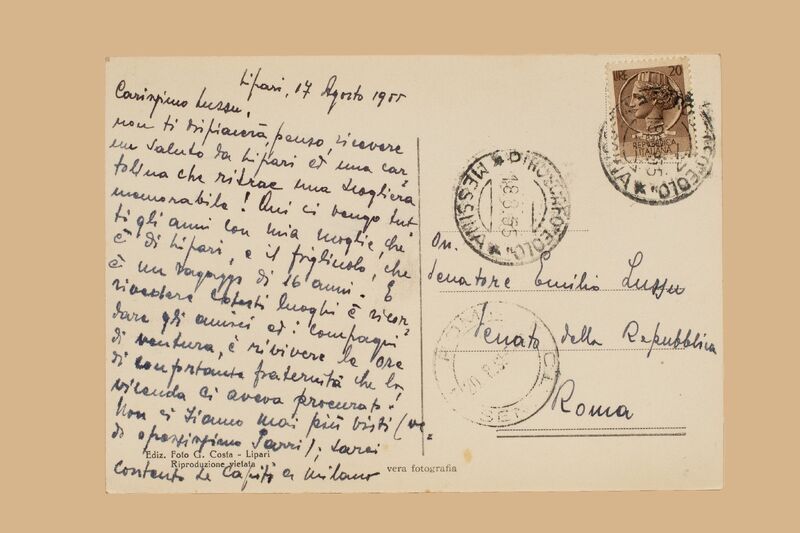 Lipari, 17 Agosto 1955
Carissimo Lussu,
non ti dispiacerà penso, ricevere
un saluto da Lipari ed una car=
tolina che ritrae una scogliera
memorabile! Qui ci vengo tut=
ti gli anni con mia moglie, che
è di Lipari, e il figliuolo, che
è un ragazzo di 16 anni. E
rivedere cotesti luoghi è ricor=
dare gli amici ed i compagni
di ventura, è rivivere le ore
di confortante fraternità che la
vicenda ci aveva procurato.
Non ci siamo mai più visti (ve=
di spessissimo Parri); sarei
contento se capiti a Milano
Ediz. Foto G. Costa - Lipari
Riproduzione vietata
vera fotografia
LIRE 20
REPUBBLICA
ITALIANA
PIROSCAFO EOLO
MESSINA
18.8.55
On.
Senatore Emilio Lussu
Senato della Repubblica
Roma
ROMA
20.8
SEN